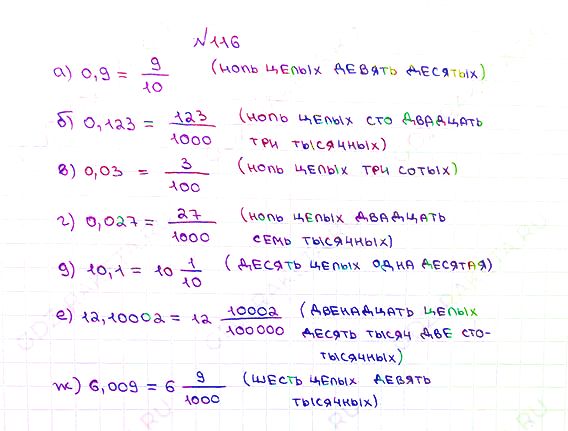 №116
а) 0,9 = 9/10 (ноль целых девять десятых)
б) 0,123 = 123/1000 (ноль целых сто двадцать
три тысячных)
в) 0,03 = 3/100 (ноль целых три сотых)
г) 0,027 = 27/1000 (ноль целых двадцать
семь тысячных)
д) 10,1 = 10 1/10 (десять целых одна десятая)
е) 12,10002 = 12 10002/100000 (двенадцать целых
десять тысяч две сто-
тысячных)
ж) 6,009 = 6 9/1000 (шесть целых девять
тысячных)